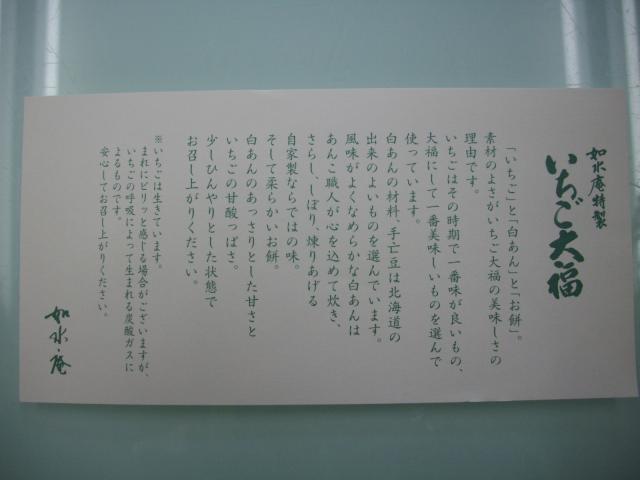 如水庵特製
いちご大福
「いちご」と「白あん」と「お餅」。
素材のよさがいちご大福の美味しさの
理由です。
いちごはその時期で一番味が良いもの、
大福にして一番美味しいものを選んで
使っています。
白あんの材料、手亡豆は北海道の
出来のよいものを選んでいます。
風味がよくなめらかな白あんは
あんこ職人が心を込めて炊き、
さらし、しぼり、煉りあげる
自家製ならではの味。
そして柔らかいお餅。
白あんのあっさりとした甘さと
いちごの甘酸っぱさ。
少しひんやりとした状態で
お召し上がりください。
※いちごは生きています。
まれにピリッと感じる場合がございますが、
いちごの呼吸によって生まれる炭酸ガスに
よるものです。
安心してお召し上がりください。
如水庵